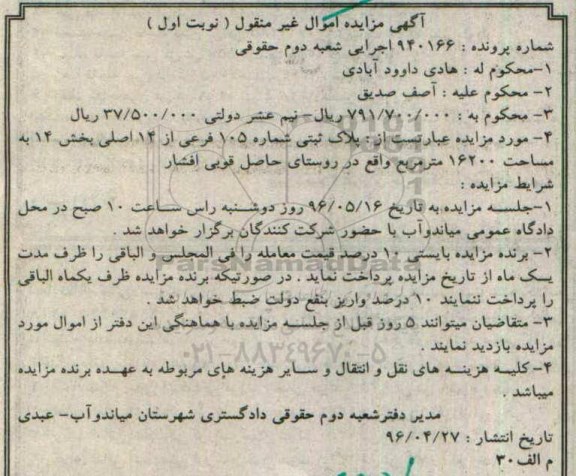 آگهی مزایده اموال غیر منقول ( نوبت اول )
شماره پرونده : ۹۴۰۱۶۶ اجرایی شعبه دوم حقوقی
۱-محکوم له : هادی داوود آبادی
۲- محکوم علیه : آصف صدیق
۳- محکوم به : ۷۹۱/۷۰۰/۰۰۰ ریال- نیم عشر دولتی ۳۷/۵۰۰/۰۰۰ ریال
۴- مورد مزایده عبارتست از : پلاک ثبتی شماره ۱۰۵ فرعی از ۱۴ اصلی بخش ۱۴ به
مساحت ۱۶۲۰۰ مترمربع واقع در روستای حاصل قوبی افشار
شرایط مزایده :
۱-جلسه مزایده به تاریخ ۹۶/۰۵/۱۶ روز دوشنبه راس ساعت ۱۰ صبح در محل
دادگاه عمومی میاندوآب با حضور شرکت کنندگان برگزار خواهد شد .
۲- برنده مزایده بایستی ۱۰ درصد قیمت معامله را فی المجلس و الباقی را ظرف مدت
یک ماه از تاریخ مزایده پرداخت نماید . در صورتیکه برنده مزایده ظرف یکماه الباقی
را پرداخت ننمایند ۱۰ درصد واریز بنفع دولت ضبط خواهد شد .
۳- متقاضیان میتوانند ۵ روز قبل از جلسه مزایده با هماهنگی این دفتر از اموال مورد
مزایده بازدید نمایند .
۰۲۱-۸۸۳۴۹۶۷۰-۵
۴- کلیه هزینه های نقل و انتقال و سایر هزینه های مربوطه به عهده برنده مزایده
میباشد .
مدیر دفترشعبه دوم حقوقی دادگستری شهرستان میاندوآب- عبدی
تاریخ انتشار : ۹۶/۰۴/۲۷
م الف ۳۰